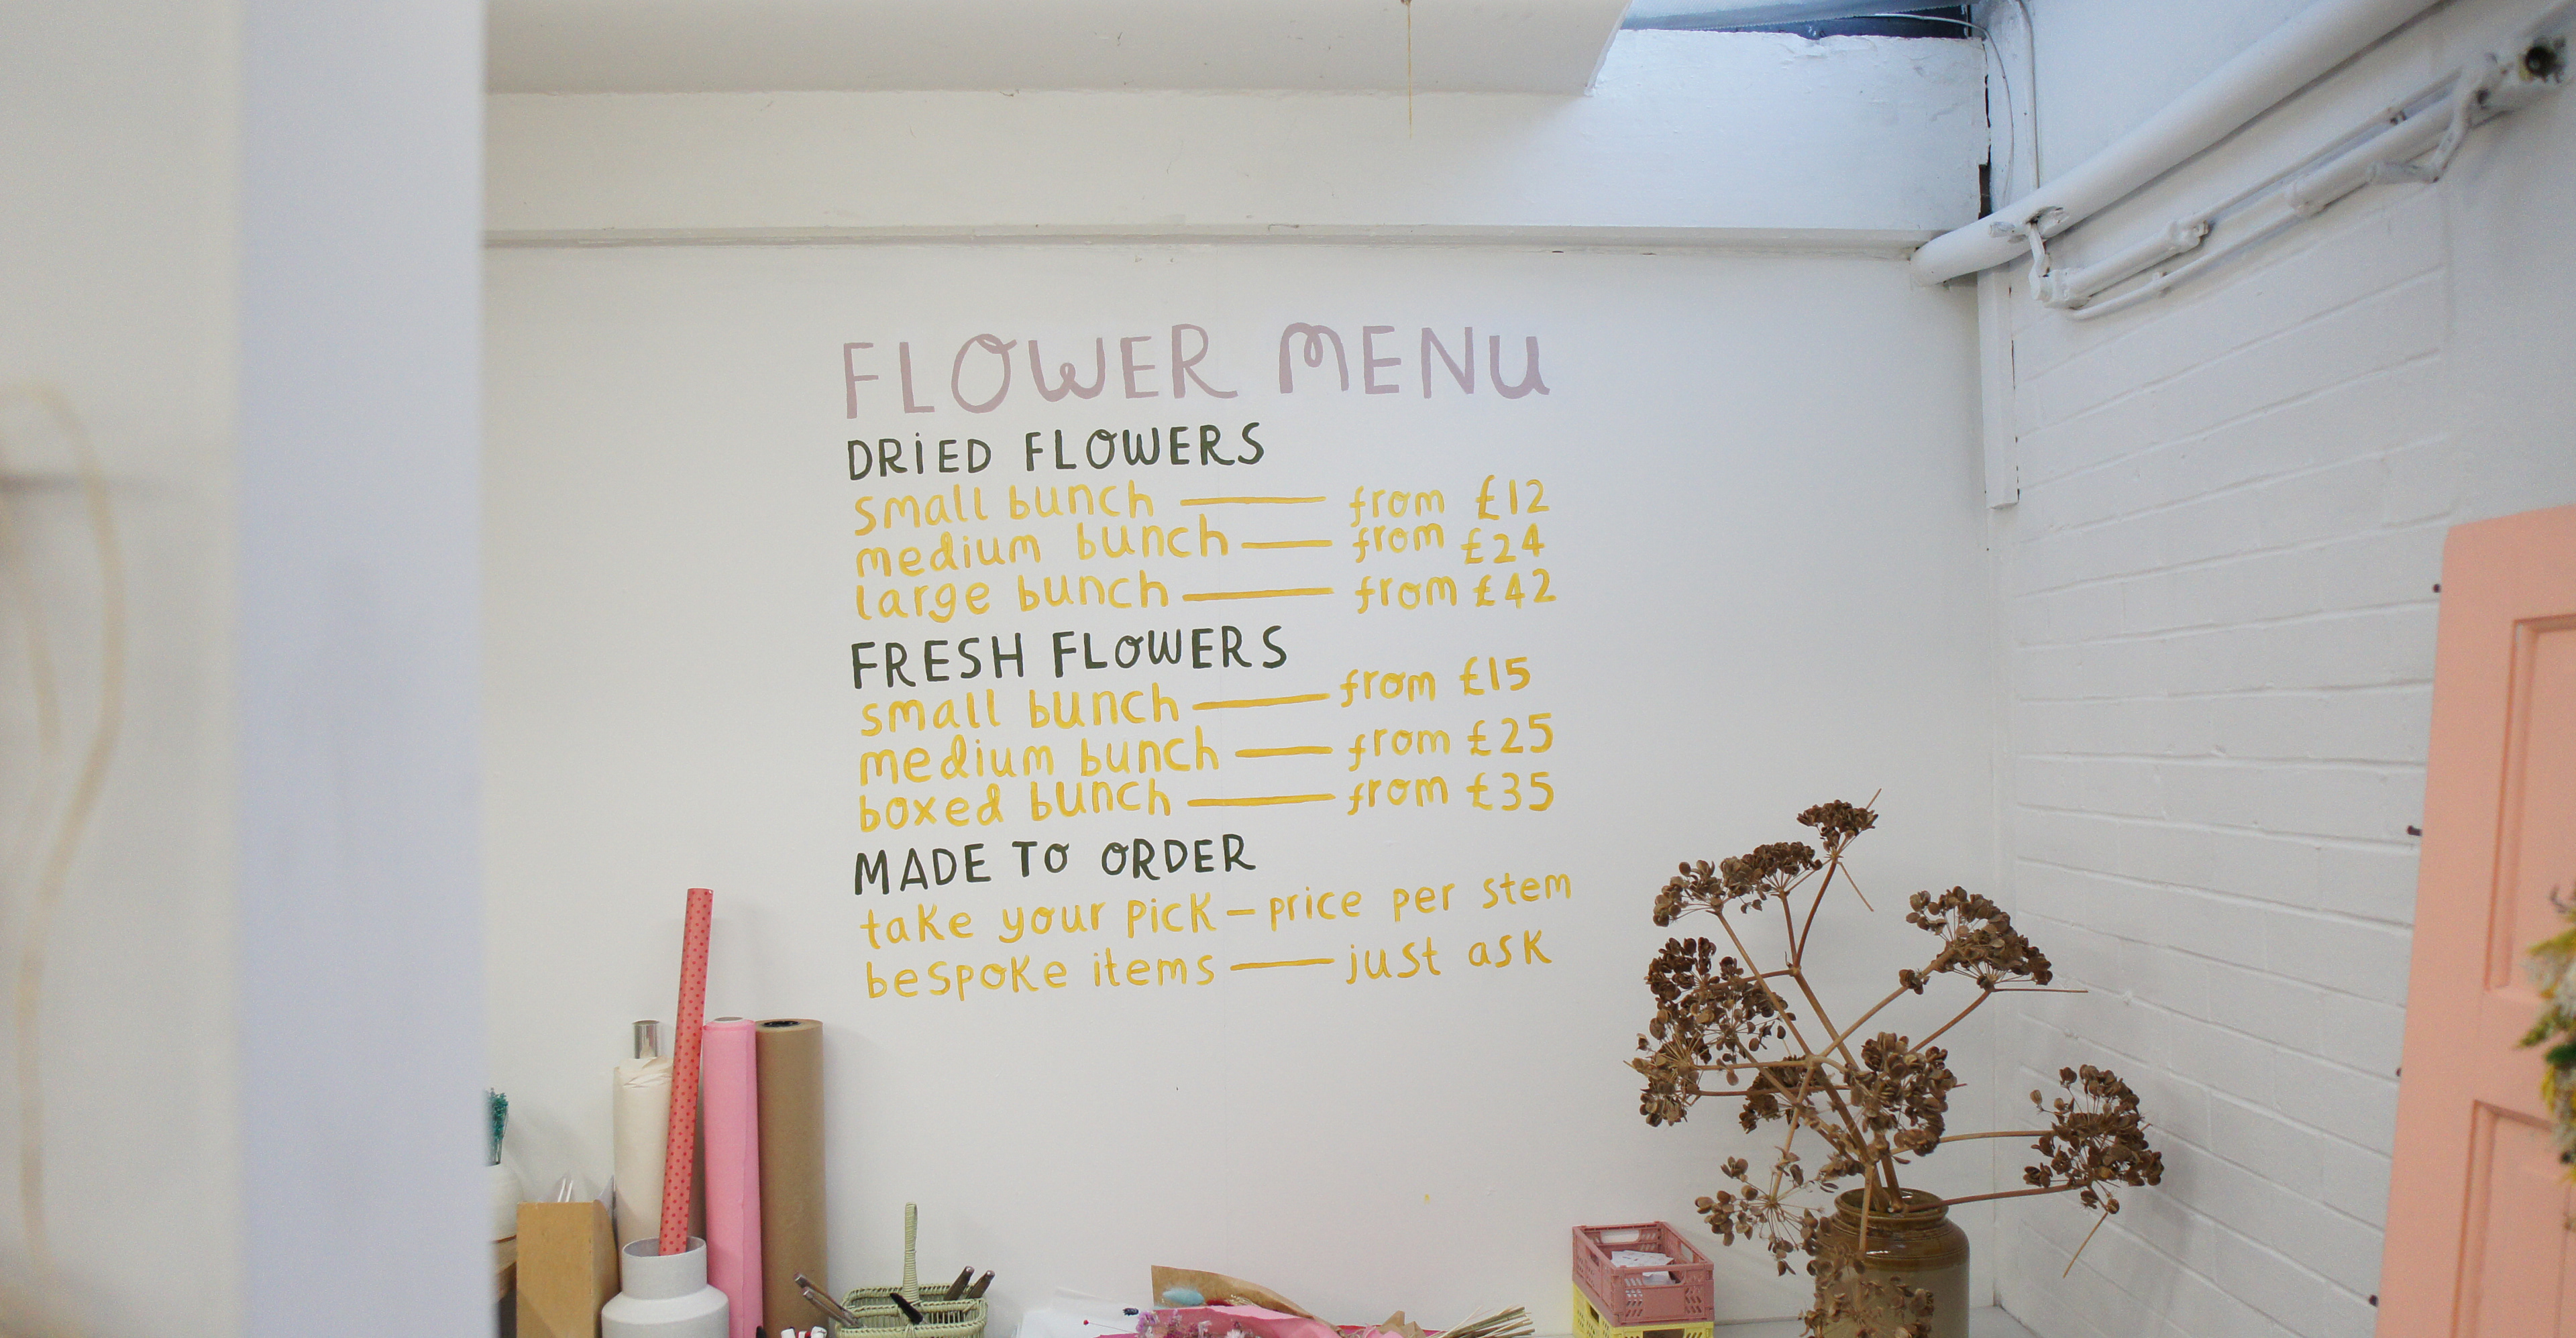 FLOWER MENU
DRiED FLOWERS
small bunch — from £12
medium bunch — from £24
large bunch — from £42
FRESH FLOWERS
small bunch — from £15
medium bunch — from £25
boxed bunch — from £35
MADE TO ORDER
take your pick – price per stem
bespoke items — just ask